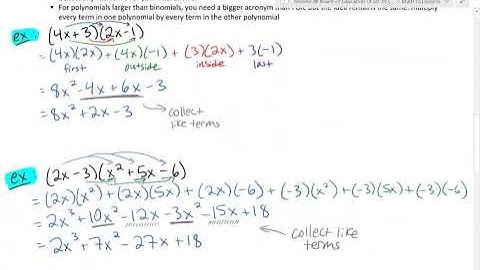 • For polynomials larger than binomials, you need a bigger acronym than
every term in one polynomial by every term in the other polynomial
ex: (4x+3)(2x-1)
= (4x)(2x) + (4x)(-1) + (3)(2x) + 3(-1)
first outside inside last
= 8x² - 4x + 6x - 3
= 8x² + 2x - 3
collect
like terms
ex: (2x-3)(x²+5x-6)
= (2x)(x²) + (2x)(5x) + (2x)(-6) + (-3)(x²) + (-3)(5x) + (-3)(-6)
= 2x³ + 10x² - 12x - 3x² - 15x + 18
= 2x³ + 7x² - 27x + 18
collect like
terms